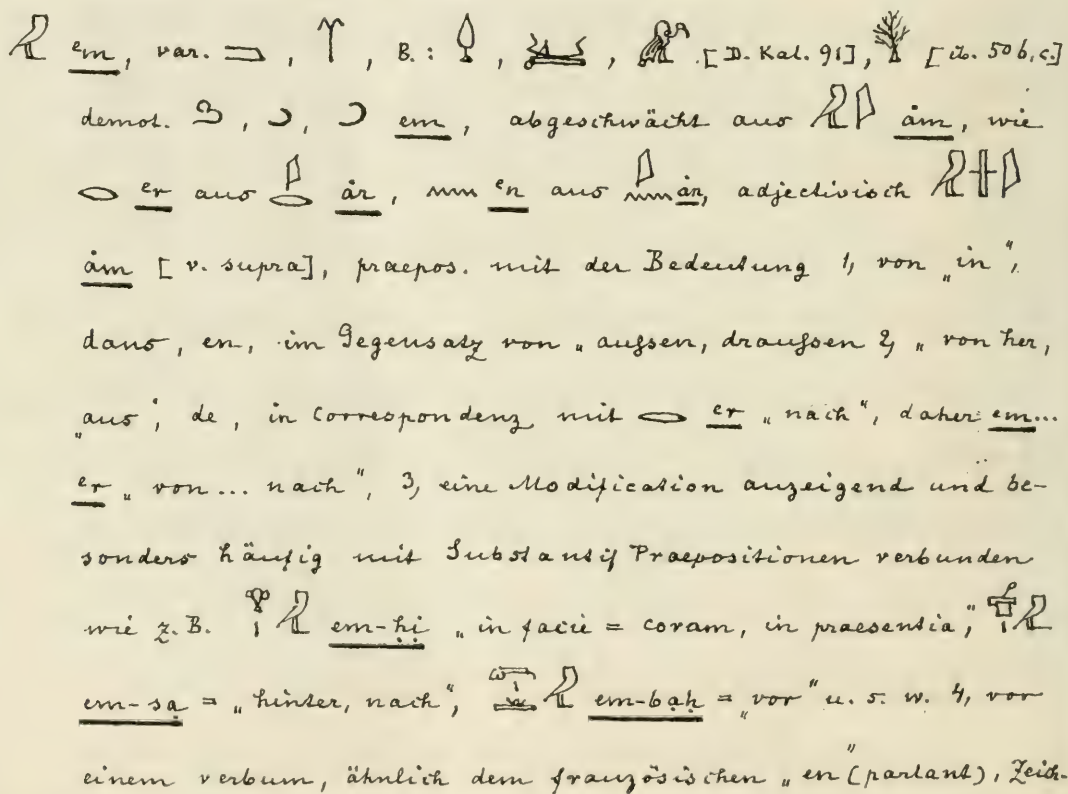 𓅓 em, var. 𓐝, , B.: , , [D. Kal. 91], [ib. 50 b.c.]
demot. , , em, abgeschwächt aus 𓅓𓇋 åm, wie
𓂋 er aus 𓇋𓂋 år, 𓈖 en aus 𓇋𓈖 ån, adjectivisch 𓅓𓏶𓇋
åm [v. supra], praepos. mit der Bedeutung 1, von „in“,
dans, en, im Gegensatz von „aufsen, draufsen 2, „von her,
„aus“, de, in Correspondenz mit 𓂋 er „nach“, daher em...
er „von... nach“, 3, eine Modification anzeigend und be-
sonders häufig mit Substantif Praepositionen verbunden
wie z. B. 𓁷𓏤𓅓 em-ḥi „in facie = coram, in praesentia“,
em-sạ = „hinter, nach“, em-bạḥ = „vor“ u. s. w. 4, vor
einem verbum, ähnlich dem französischen „en“ (parlant), Zeich-